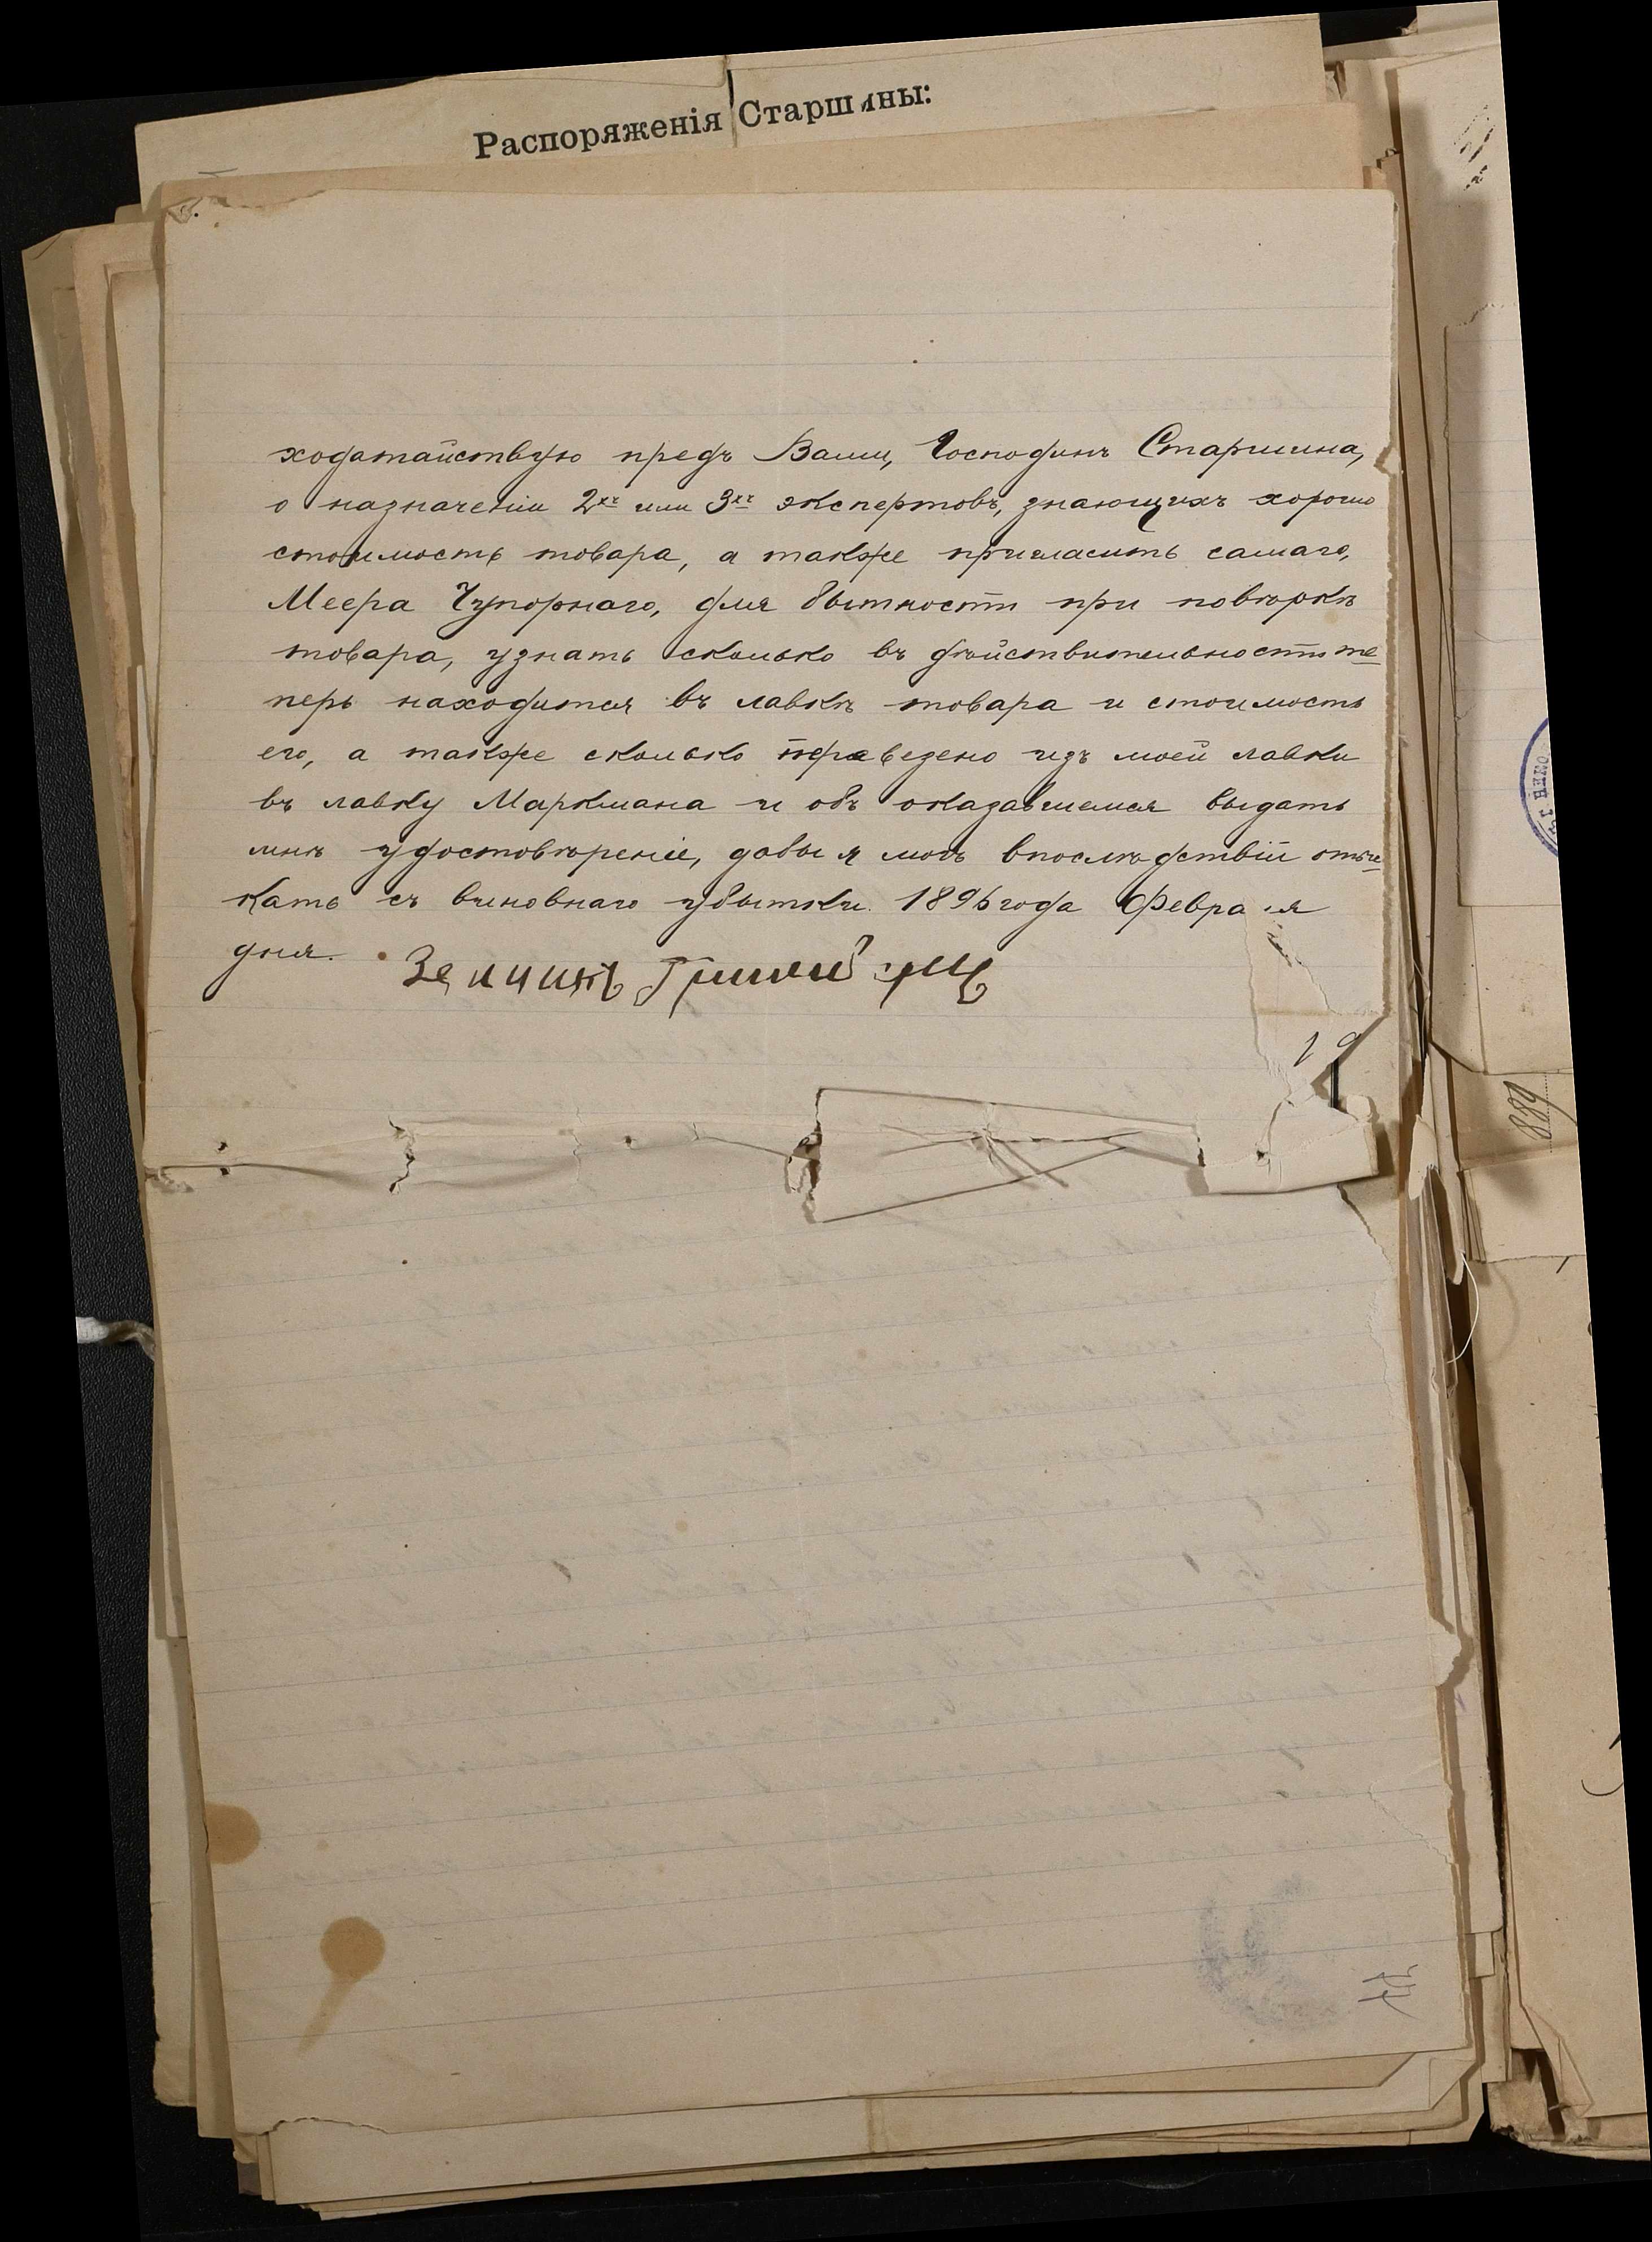 Распоряженія Старшины:
ходатайствую предъ Вами, Господинъ Старшина,
о назначеніи 2хъ или 3хъ экспертовъ, знающихъ хорошо
стоимость товара, а также пригласить самаго,
Меера Чупорнаго, для бытности при повѣркѣ
товара, узнать сколько въ дѣйствительности те
перь находится въ лавкѣ товара и стоимость
его, а также сколько перевезено изъ моей лавки
въ лавку Маркмана и объ оказавшемся выдать
мнѣ удостовѣреніе, дабы я могъ впослѣдствіи оты
кать съ виновнаго убытки. 1896 года Февра я
дня.
889